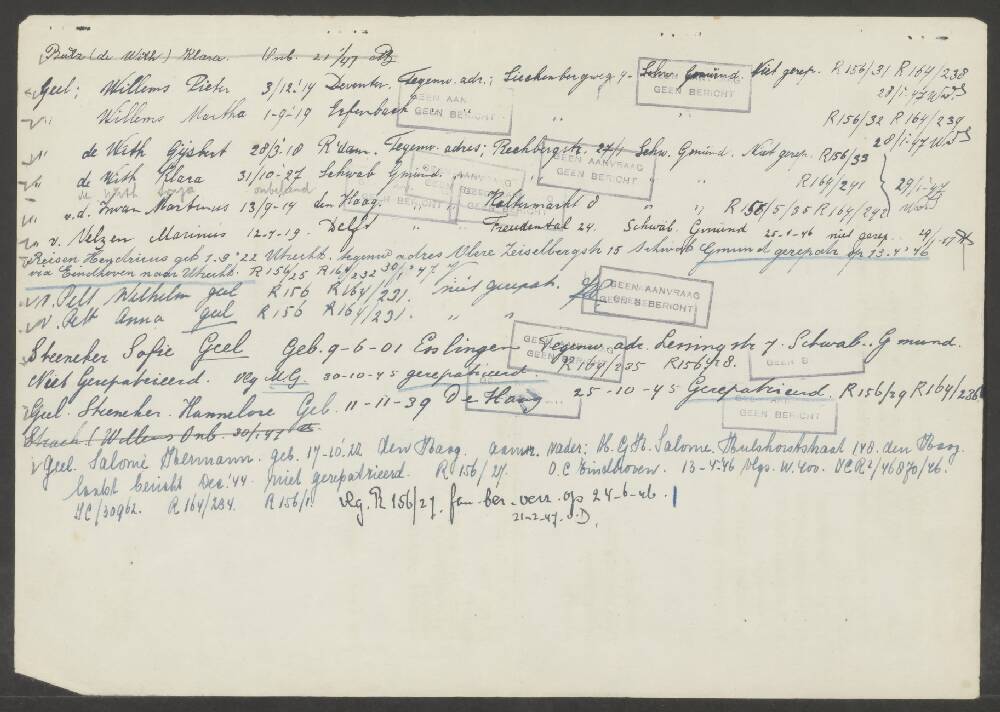 Bütz (de With) Klara Onb. 21/1/47
Geel; Willems Pieter 3/12.'14 Deventer. Tegenw. adr.; 4. Schw. Gmünd. Niet gerep. R156/31 R164/238
28/1-47
Willems Martha 1-9-'19 Erfenbach " " " R156/32 R164/239
28/1-47
de With Gijsbert 28/3-'18 R'dam. Tegenw. adres; Rechbergstr. 27/1 Schw. Gmünd. Niet gerep. R156/33
de With Klara 31/10-'27 Schwab Gmünd. " " R164/241 29/1-47
de With Sonja onbekend
v.d. Zwan Martinus 13/9-'14 den Haag. " Kaltermarkt 8 " " R156/5/35 R164/242
v. Velzen, Marinus 12-7-19. Delft " Freudental 24. Schwäb. Gmünd 25-1-46 niet gerep. 29/1-47
Reisen Hendricus geb 1.9'22 Utrecht. tegenw adres Obere Zeiselbergstr 15 Schwäb Gmund gerepatr op 13-4-'46
via Eindhoven naar Utrecht. R156/25 R164/232 30/1'47
v. Pelt Wilhelm geel R156 R164/231. niet gerepatr.
v. Pelt Anna geel R156 R164/231. " "
Steeneker Sofie Geel Geb. 9-6-01 Esslingen Tegenw. adr. Lessingstr 7. Schwab. Gmund.
Niet Gerepatrieerd. vlg M.G. 30-10-45 gerepatrieerd. R164/235 R156/28.
Geel. Steeneker. Hannelore Geb. 11-11-39 Den Haag 25-10-45 Gerepatrieerd. R156/29 R164/236
Strack (Willems Onb. 30/1'47
Geel. Salomé Hermann. geb. 17-10.'22 Den Haag. vader: H.G.H. Salomé Hulshorststraat 148. den Haag.
laatst bericht Dec.'44. niet gerepatrieerd. R156/27. O.C. Eindhoven. 13-4-46 Vlgs. W.400. VCR2/46870/46.
HC/30962. R164/234. R156/1. vlg. R156/27. fam. ber. verr. op 24-6-46.
21-2-47. D.
GEEN AANVRAAG
GEEN BERICHT
GEEN AAN
GEEN BERICHT
GEEN AANVRAAG
GEEN BERICHT
GEEN AANVRAAG
GEEN BERICHT
GEEN BERICHT